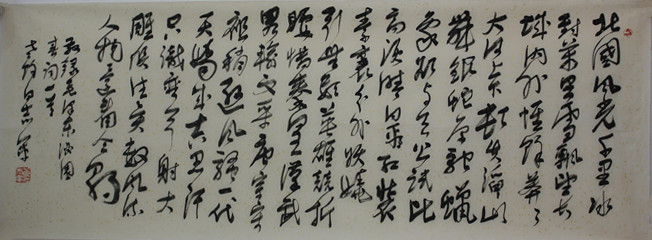 北國風光千里冰
封萬里雪飄望長
城内外惟餘莽々
大河上下頓失滔々山
舞銀蛇原馳蠟
象欲與天公試比
高須晴日看紅裝
素裹分外妖嬈
引無數英雄競折
腰惜秦皇漢武
略輸文采唐宗宋
祖稍遜風騷一代
天驕成吉思汗
只識彎弓射大
雕俱往矣數風流
人物還看今朝
敬錄毛澤東沁園
春詞一首